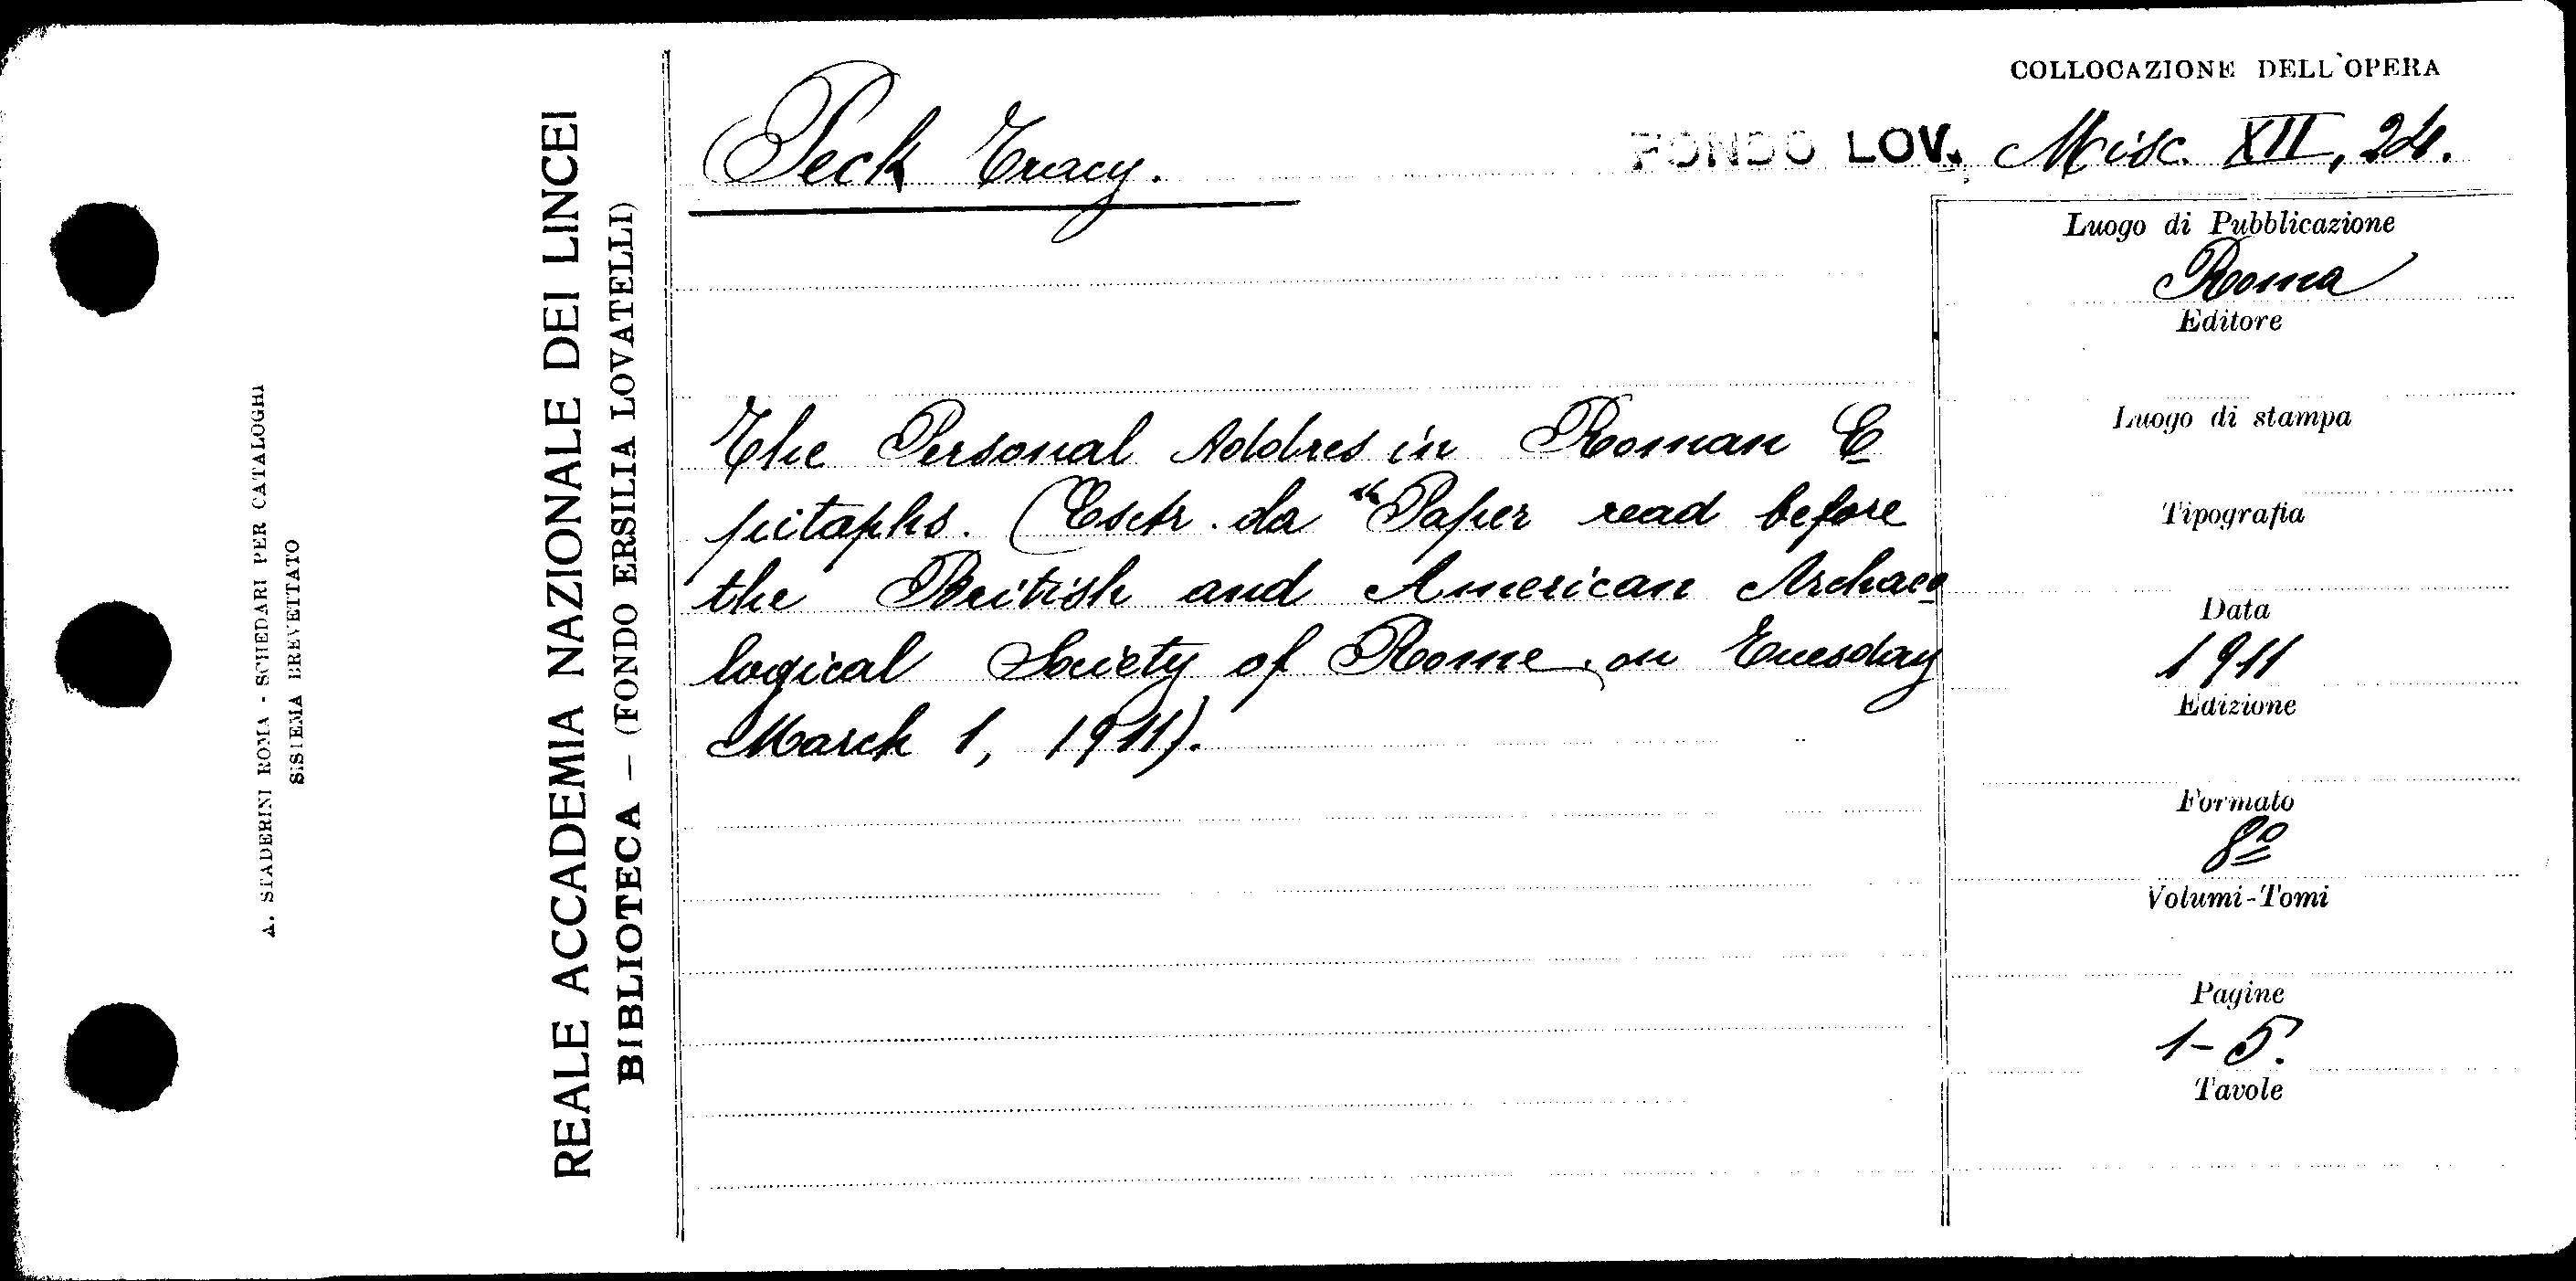 A. STADERINI ROMA - SCHEDARI PER CATALOGHI
SISTEMA BREVETTATO
REALE ACCADEMIA NAZIONALE DEI LINCEI
BIBLIOTECA — (FONDO ERSILIA LOVATELLI)
COLLOCAZIONE DELL'OPERA
Peck Tracy.
FONDO LOV. Misc. XII, 24.
The Personal Addres in Roman E
pitaphs. (Estr. da "Paper read before
the British and American Archaeo
logical Society of Rome, on Tuesday
March 1, 1911).
Luogo di Pubblicazione
Roma
Editore
Luogo di stampa
Tipografia
Data
1911
Edizione
Formato
8º
Volumi-Tomi
Pagine
1-5.
Tavole